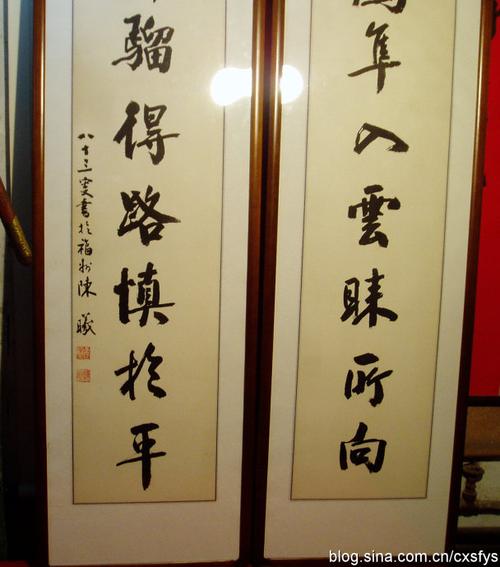 隼入雲睐所向
騮得路慎於平
八十三叟書於福州陳曦
blog.sina.com.cn/cxsfys